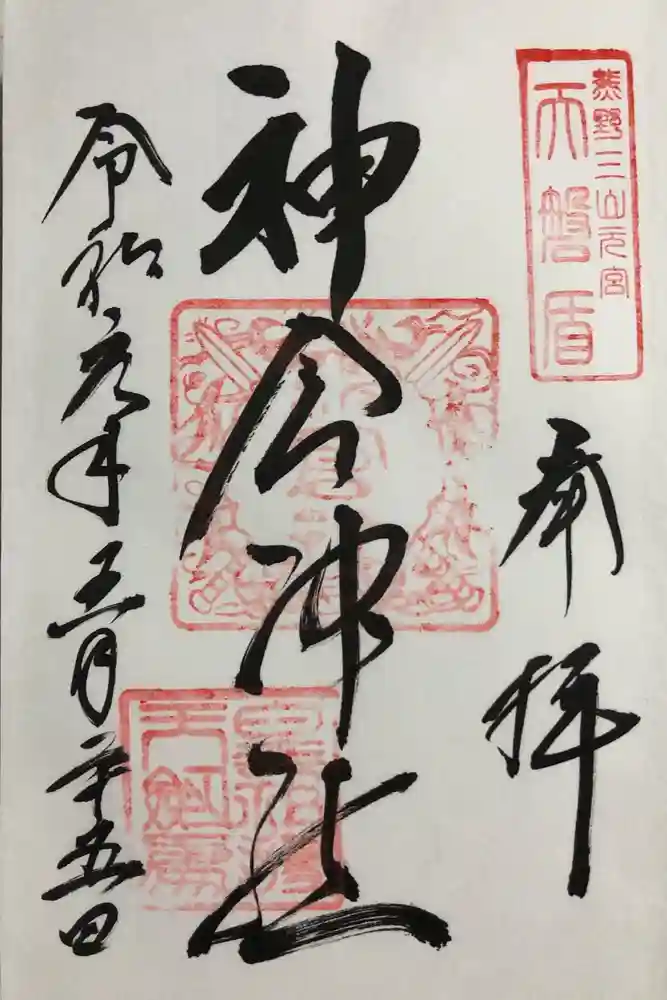 熊野三山元宮
天磐盾
奉拝
神倉神社
令和元年五月二十五日